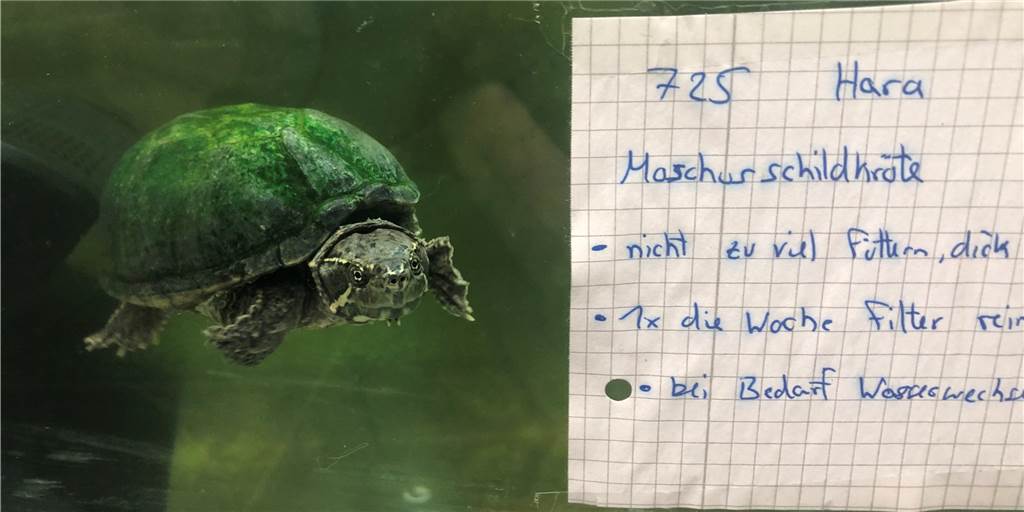 725 Hara
Moschusschildkröte
- nicht zu viel füttern, dick
• 1x die Woche Filter rein
• bei Bedarf Wasserwechse